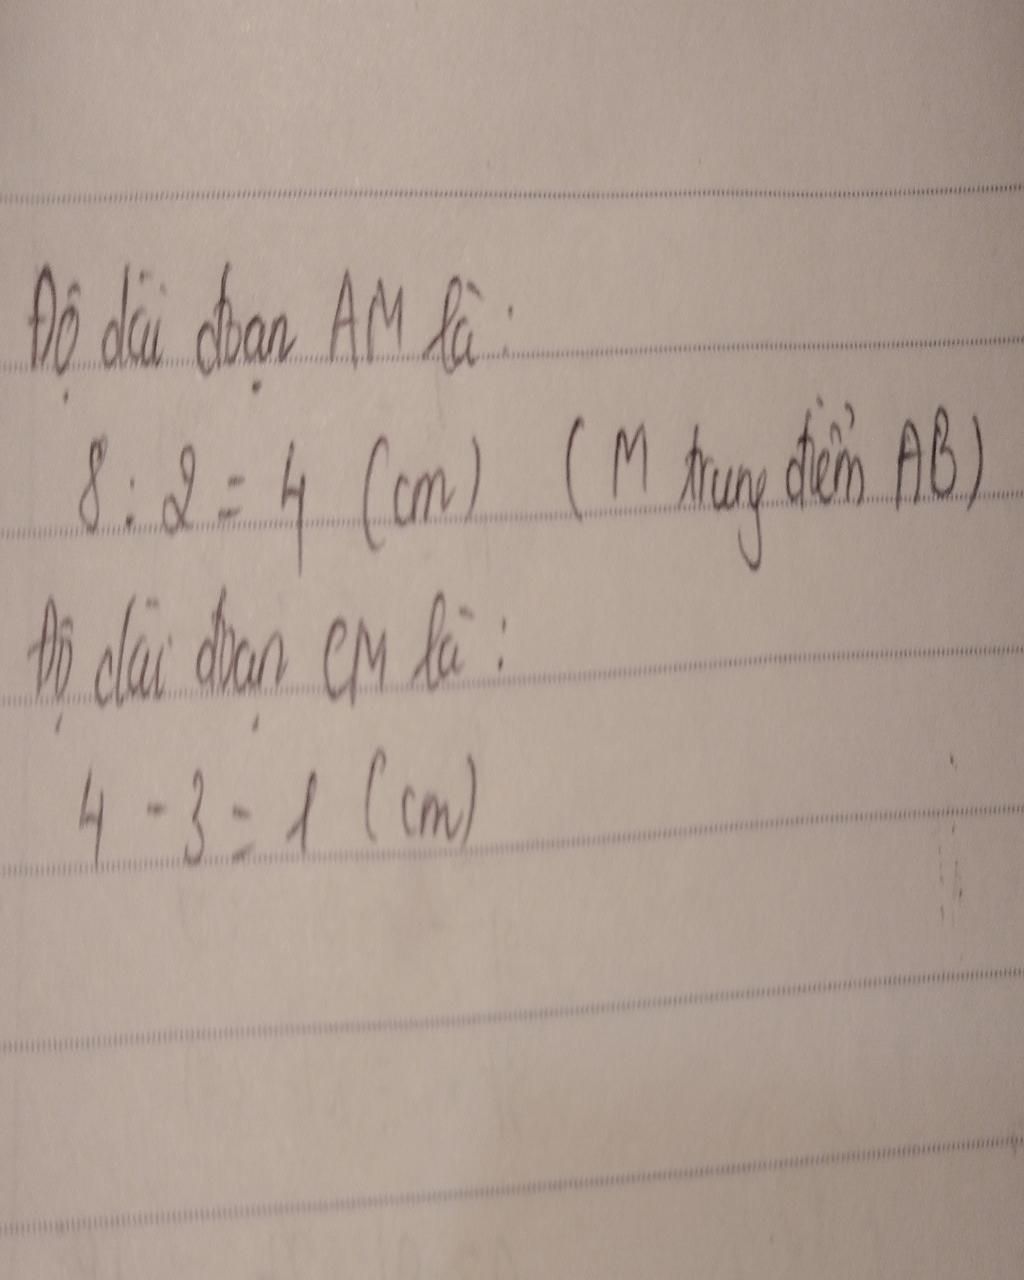 Độ dài đoạn AM là:
8 : 2 = 4 (cm) (M trung điểm AB)
Độ dài đoạn CM là:
4 - 3 = 1 (cm)